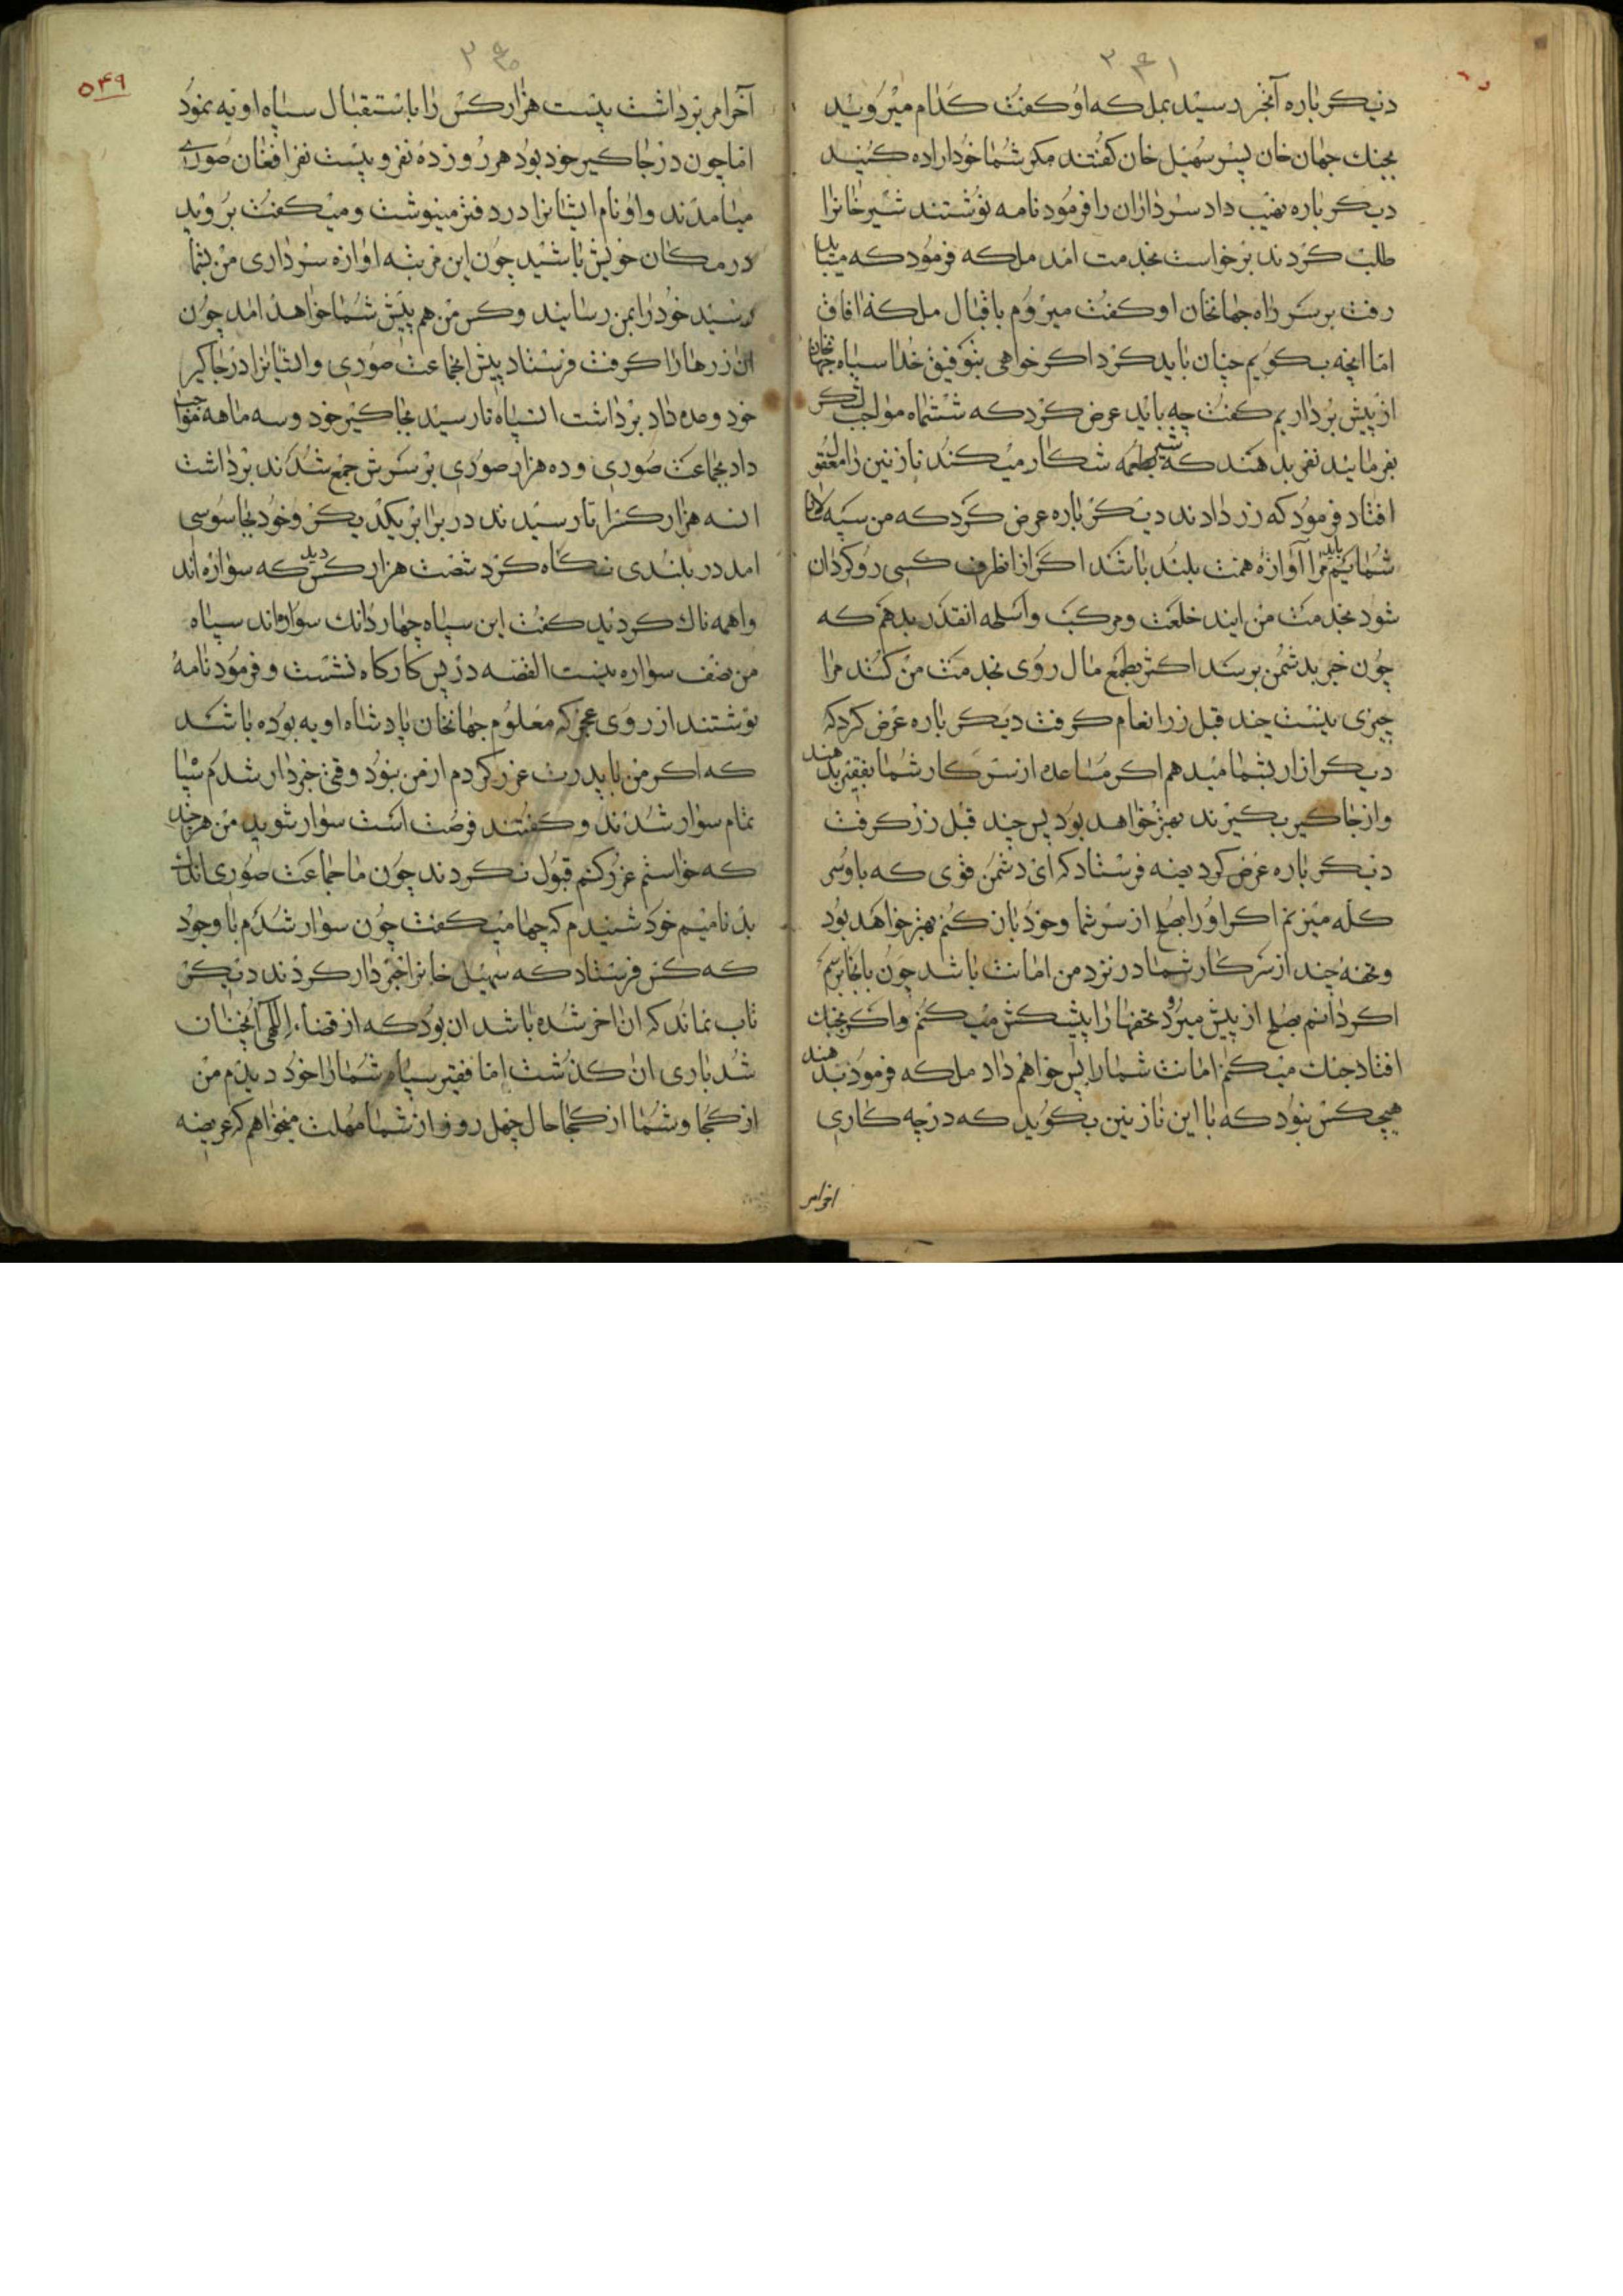 ۳۹۱
دیکر باره آنخبر رسید بملکه او کفت کدام میروید
بجنك جهان خان پسر سهیل خان کفتند مکر شما خود اراده کنید
دیکر باره نهیب داد سرداران را فرمود نامه نوشتند شیر خانرا
طلب کردند برخواست بخدمت امد ملکه فرمود که میباید
رفت بر سر راه جهانخان او کفت میروم باقبال ملکه افاق
اما انچه بکویم چنان باید کرد اکر خواهی بتوفیق خدا سپاه جهانخان
از پیش برداریم کفت چه باید عرض کرد که ششماه مواجب لشکر
بفرمایید نفر بدهند که شیر بطعمه شکار میکند نازنین را معقول
افتاد فرمود که زر دادند دیکر باره عرض کرد که من سپه
شمایم باید مرا آوازه همت بلند باشد اکر ازانطرف کسی روکردان
شود بخدمت من ایند خلعت و مرکب و اسلحه انقدر بدهم که
چون خبر بدشمن برسد اکثر بطمع مال روی بخدمت من کنند مرا
چیزی نیست چند قبل زر انعام کرفت دیکر باره عرض کرد که
دیکر ازار بشما میدهم اکر مساعده از سرکار شما بفقیر بدهند
و از جاکیر بکیرند بهتر خواهد بود پس چند قبل زر کرفت
دیکر باره عرض کرد بینه فرستاد که ای دشمن قوی که با وسر
کله میزنم اکر او را بصلح از سر شما و خود باز کنم بهتر خواهد بود
و تحفهٔ چند از سرکار شما در نزد من امانت باشد چون بانجا برسم
اکر دانم بصلح از پیش میرود تحفها را پیشکش میکنم و اکر بجنك
افتاد جنك میکنم امانت شما را پس خواهم داد ملکه فرمود بدهند
هیچکس نبود که با این نازنین بکوید که در چه کاری
اخرامر
۳۹۰
۵۴۹
آخرامر برداشت بیست هزار کس را باستقبال سپاه اوبه نمود
اما چون در جاکیر خود بود هر روز ده نفر و بیست نفر افغان صوری
میامدند و او نام ایشانرا در دفتر مینوشت و میکفت بروید
در مکان خویش باشید چون این مرتبه اوازه سرداری من بشما
رسید خود را بمن رسانید وکر من هم پیش شما خواهد امد چون
ان زرها را کرفت فرستاد پیش انجماعت صوری و ایشانرا در جاکیر
خود وعده داد برداشت ان سپاه تا رسید بجاکیر خود و سه ماهه مواجب
داد بجماعت صوری و ده هزار صوری بر سرش جمع شدند برداشت
انسه هزار کسرا تا رسیدند در برابر یکدیکر و خود بجاسوسی
امد در بلندی نکاه کرد شصت هزار کس دید که سوارهاند
واهمه ناك کردید کفت این سپاه چهار دانك سوارهاند سپاه
من نصف سواره نیست القصه در پس کارکاه نشست و فرمود نامهٔ
نوشتند از روی عجز که معلوم جهانخان پادشاه اوبه بوده باشد
که اکر من با پدرت عزر کردم از من نبود وقتی خبردار شدم سپاه
تمام سوار شدند و کفتند فرصت است سوار شوید من هر چند
که خواستم عزر کنم قبول نکردند چون ما جماعت صوری
بدنامیم خود شنیدم که چها میکفت چون سوار شدم باوجود
که کس فرستاد که سهیل خانرا خبردار کردند دیکر
تاب نماند که ان اخر شده باشد ان بود که از قضاء الهی آنچنان
شد باری ان کذشت اما فقیر سپاه شما را خود دیدم من
از کجا و شما از کجا حال چهل روز از شما مهلت میخواهم که عریضه